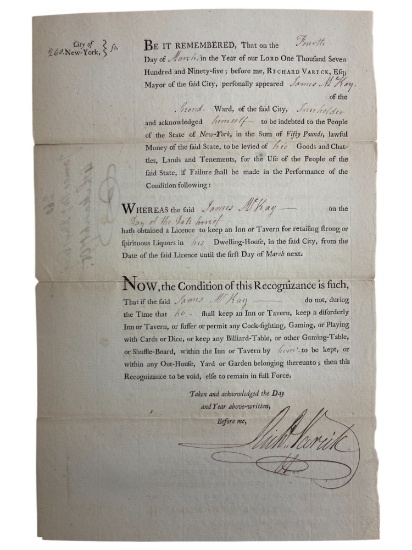 City of
New-York, } ss.
BE IT REMEMBERED, That on the Fourth
Day of March, in the Year of our LORD One Thousand Seven
Hundred and Ninety-five; before me, RICHARD VARICK, Esq;
Mayor of the said City, personally appeared James McKay
of the
Second Ward, of the said City, Innholder
and acknowledged himself to be indebted to the People
of the State of New-York, in the Sum of Fifty Pounds, lawful
Money of the said State, to be levied of his Goods and Chat-
tles, Lands and Tenements, for the Use of the People of the
said State, if Failure shall be made in the Performance of the
Condition following:
WHEREAS the said James McKay on the
Day of the Date hereof
hath obtained a Licence to keep an Inn or Tavern for retailing strong or
spirituous Liquors in his Dwelling-House, in the said City, from the
Date of the said Licence until the first Day of March next.
NOW, the Condition of this Recognizance is such,
That if the said James McKay do not, during
the Time that he shall keep an Inn or Tavern, keep a disorderly
Inn or Tavern, or suffer or permit any Cock-fighting, Gaming, or Playing
with Cards or Dice, or keep any Billiard-Table, or other Gaming-Table,
or Shuffle-Board, within the Inn or Tavern by him to be kept, or
within any Out-House, Yard or Garden belonging thereunto; then this
Recognizance to be void, else to remain in full Force.
Taken and acknowledged the Day
and Year above-written,
Before me,
Richd Varick